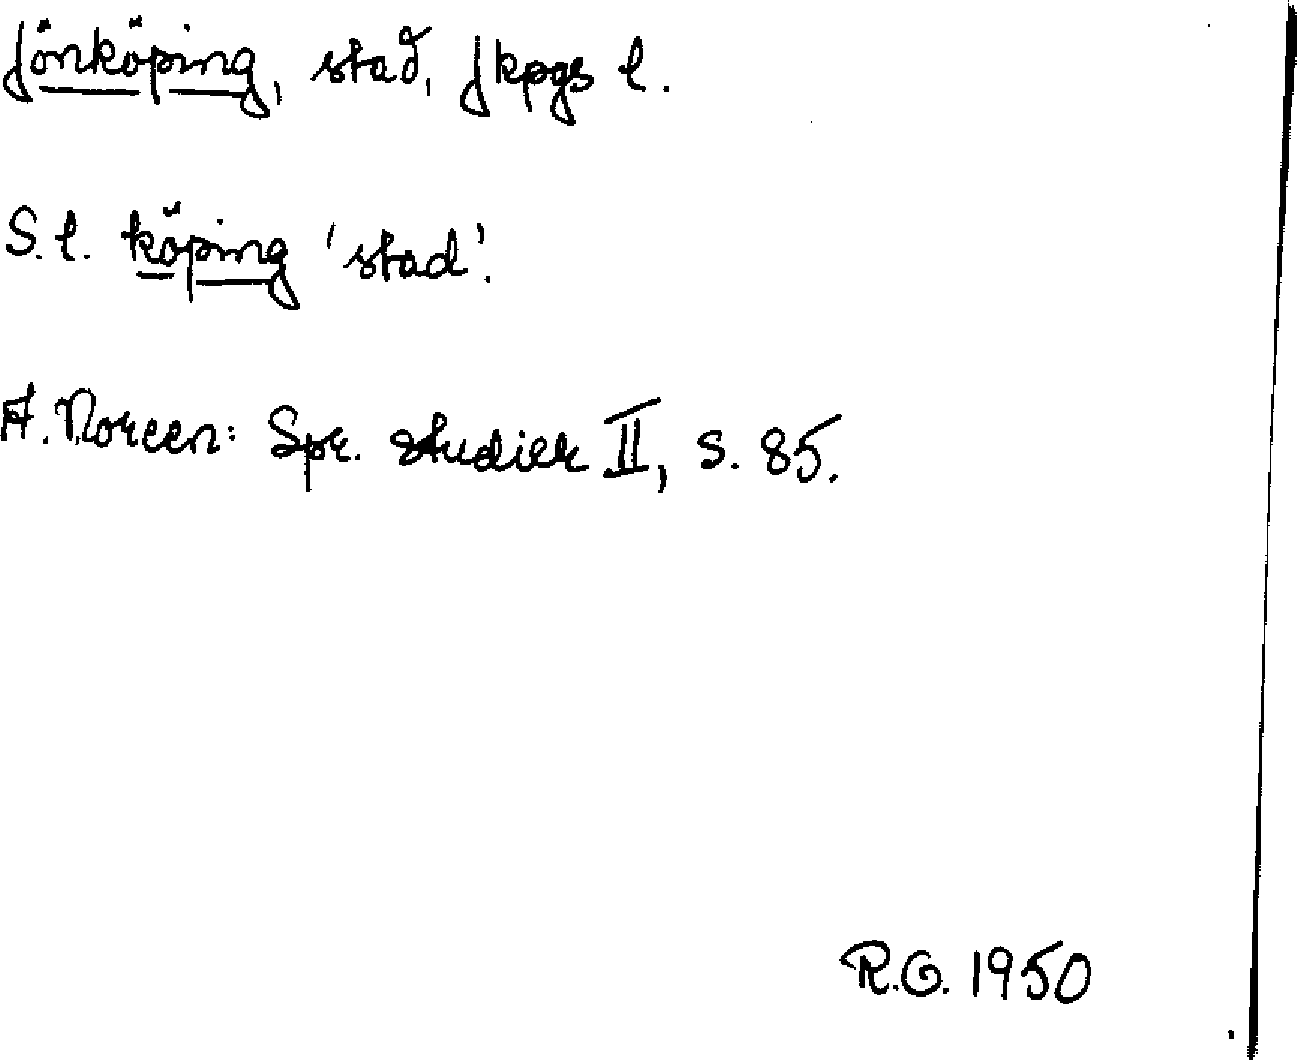 Jönköping, stad, Jkpgs l.
S.l. köping 'stad'.
A. Noreen: Spr. studier II, s. 85.
R.G. 1950